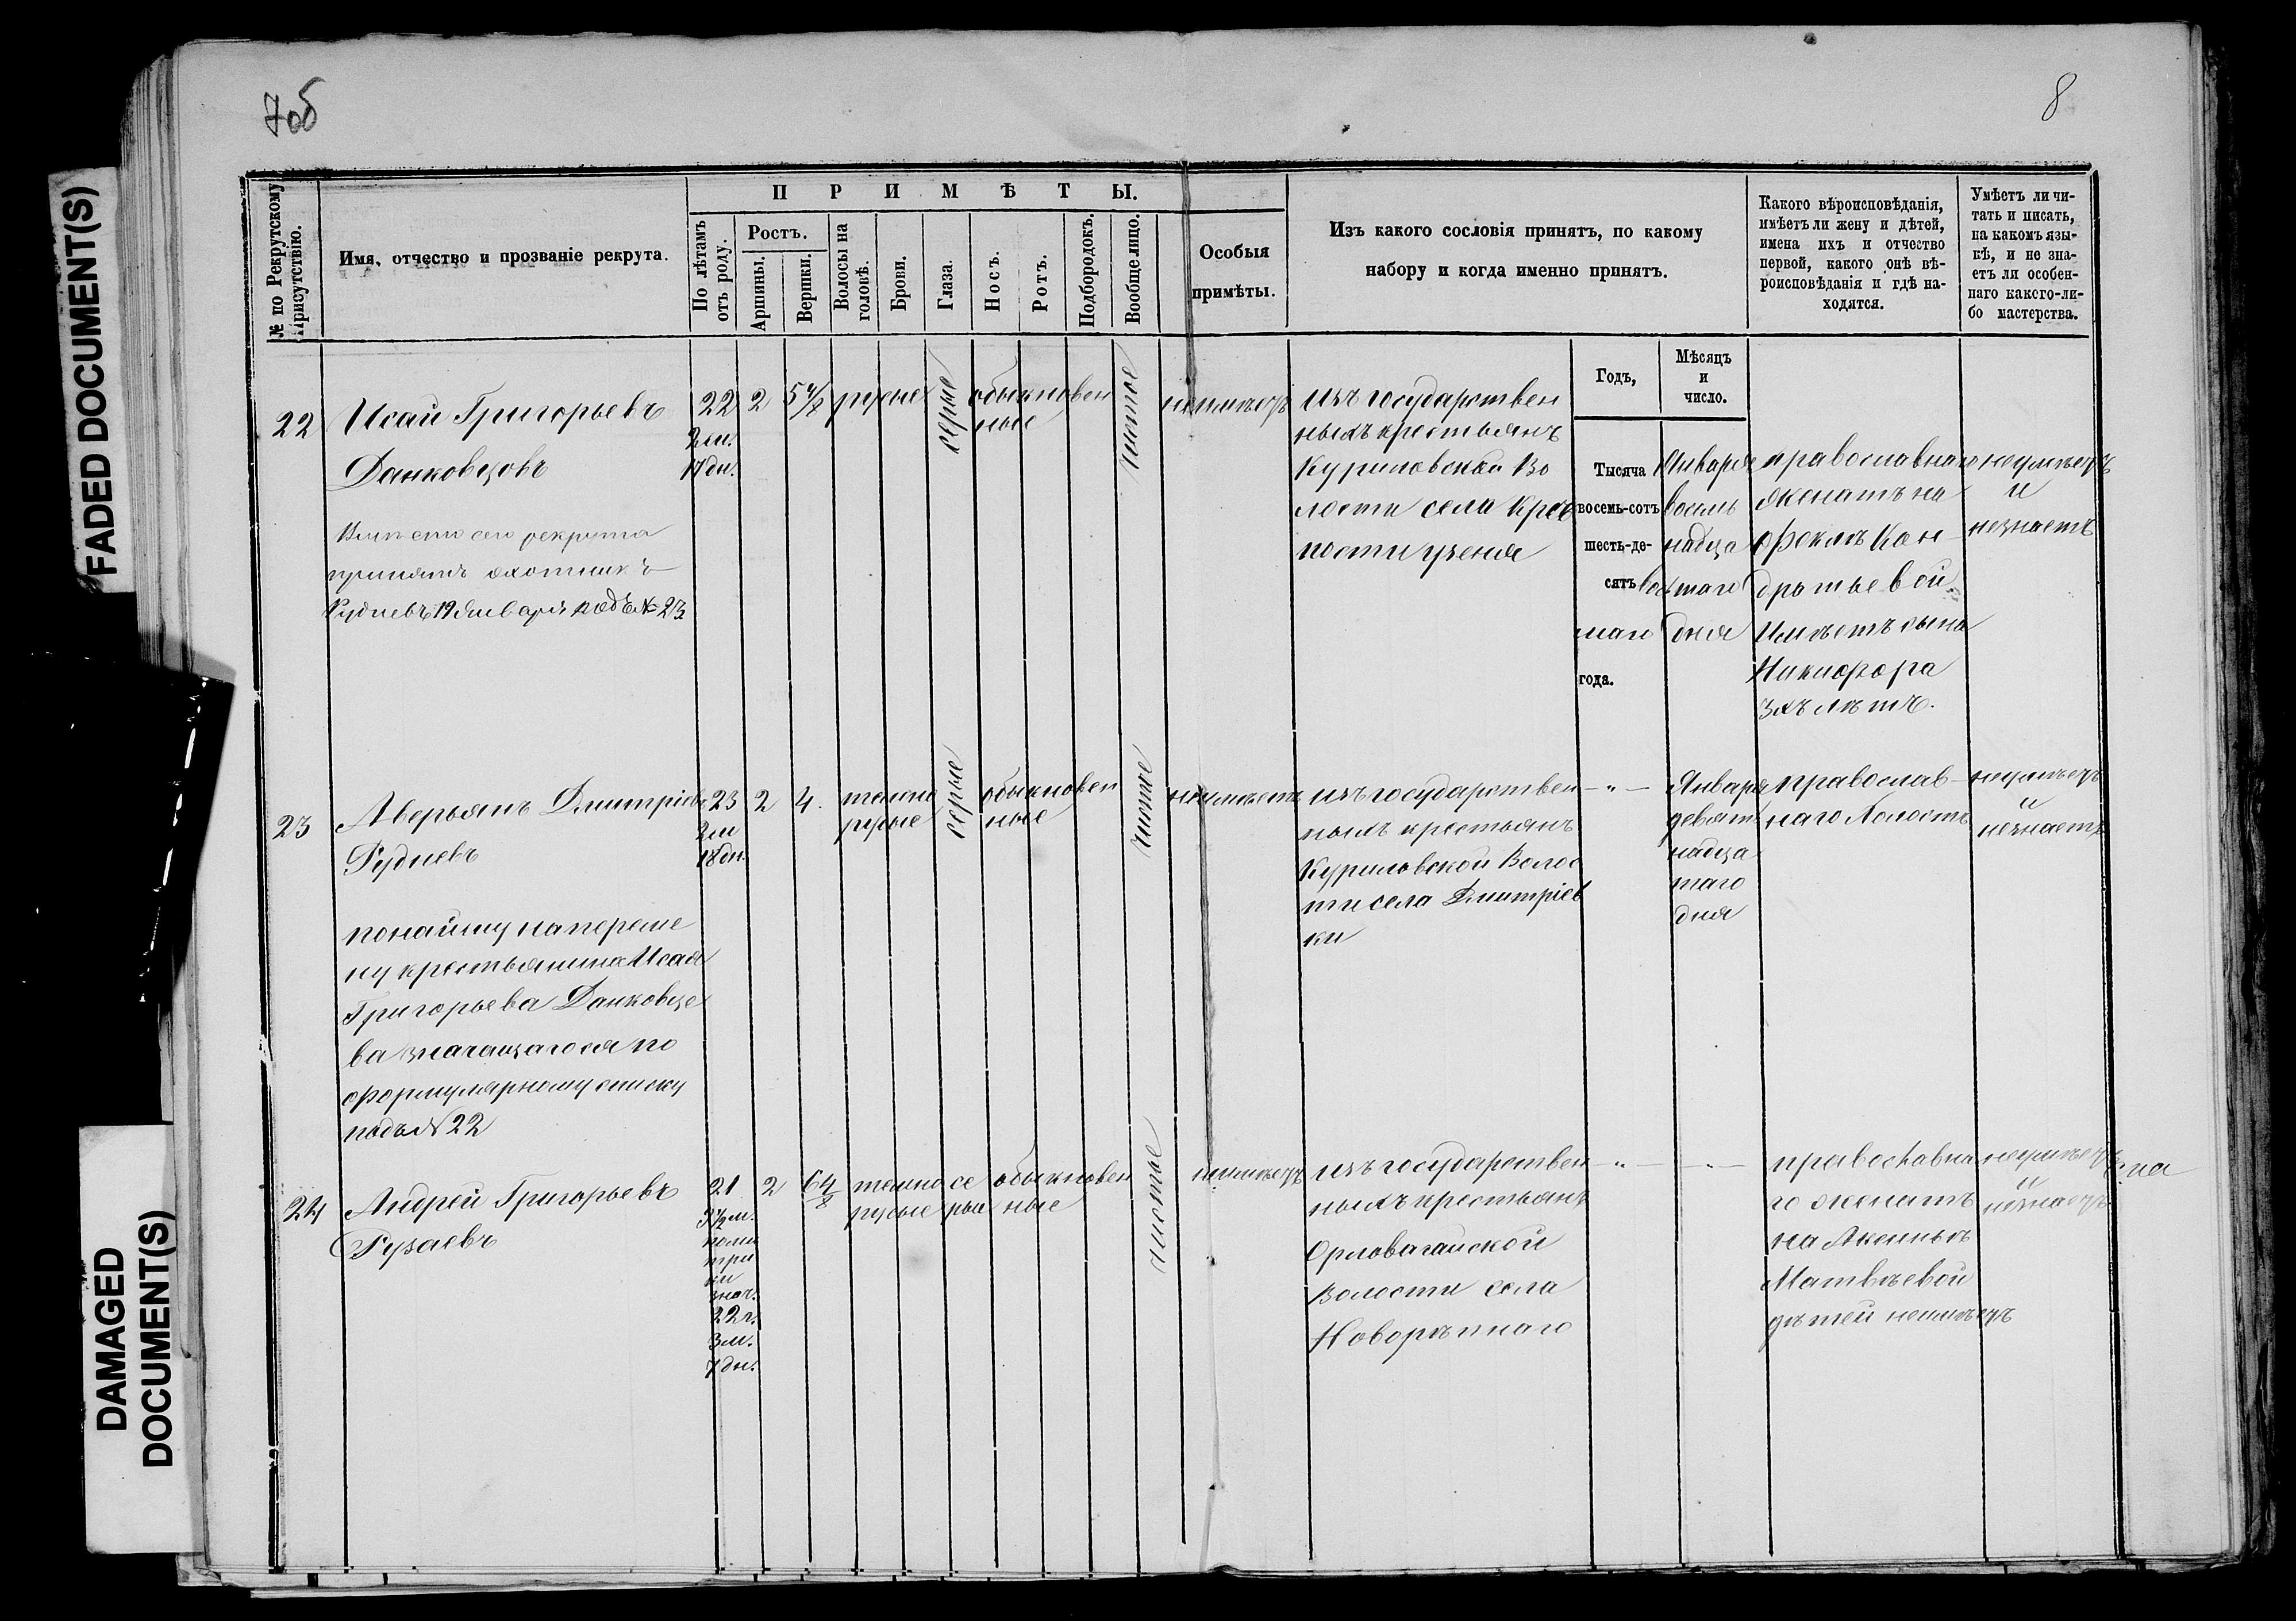 7об
8
FADED DOCUMENT(S)
DAMAGED
DOCUMENT(S)
№ по Рекрутскому
Присутствію.
Имя, отчество и прозваніе рекрута.
ПРИМѢТЫ.
По лѣтамъ
отъ роду.
Ростъ.
Аршины.
Вершки.
Волосы на
головѣ.
Брови.
Глаза.
Носъ.
Ротъ.
Подбородокъ.
Вообще лицо.
Особыя
примѣты.
Изъ какого сословія принятъ, по какому
набору и когда именно принятъ.
Какого вѣроисповѣданія,
имѣетъ ли жену и дѣтей,
имена ихъ и отчество
первой, какого онѣ вѣ-
роисповѣданія и гдѣ на-
ходятся.
Умѣетъ ли чи-
тать и писать,
на какомъ язы-
кѣ, и не зна-
етъ ли особен-
наго какого-ли-
бо мастерства.
Годъ,
Мѣсяцъ
и
число.
22
Исай Григорьевъ
Данковцовъ
Вмѣсто сего рекрута
принятъ охотникъ
Рудневъ 19 Января подъ № 23
22
2 м.
17 дн.
2
5 4/8
русые
серые
обыкновен
ные
чистое
неимѣетъ
изъ государствен
ныхъ крестьянъ
Куриловской Во
лости села Кре
пости узеня
Тысяча
восемь-сотъ
шесть-де-
сятъ вось
маго
года.
Января
восемь
надца
таго
дня
православнаго
женатъ на
Феклѣ Кон-
дратьевой
Имѣетъ сына
Никифора
3хъ лѣтъ.
неумѣетъ
и
незнаетъ
23
Аверьянъ Дмитріевъ
Рудневъ
по найму на переме
ну крестьянина Исая
Григорьева Данковце
ва значащагося по
формулярному списку
подъ № 22
23
2 м
18 дн.
2
4.
темно
русые
серые
обыкновен
ные
чистое
неимѣетъ
изъ государствен
ныхъ крестьянъ
Куриловской Волос
ти села Дмитріев
ки
— " —
Января
девят
надца
таго
дня
православ-
наго Холостъ
неумѣетъ
и
незнаетъ
24
Андрей Григорьевъ
Рузаевъ
21
3 1/2 м.
поме
три
ки
знач.
22 г.
3 м.
7 дн.
2
6 4/8
темно
русые
се
рые
обыкновен
ные
чистое
неимѣетъ
изъ государствен
ныхъ крестьянъ
Орловагайской
Волости села
Новорѣпнаго
— " —
— " —
православна
го женатъ
на Аксиньѣ
Матвѣевой
дѣтей неимѣетъ
неумѣетъ
и
незнаетъ